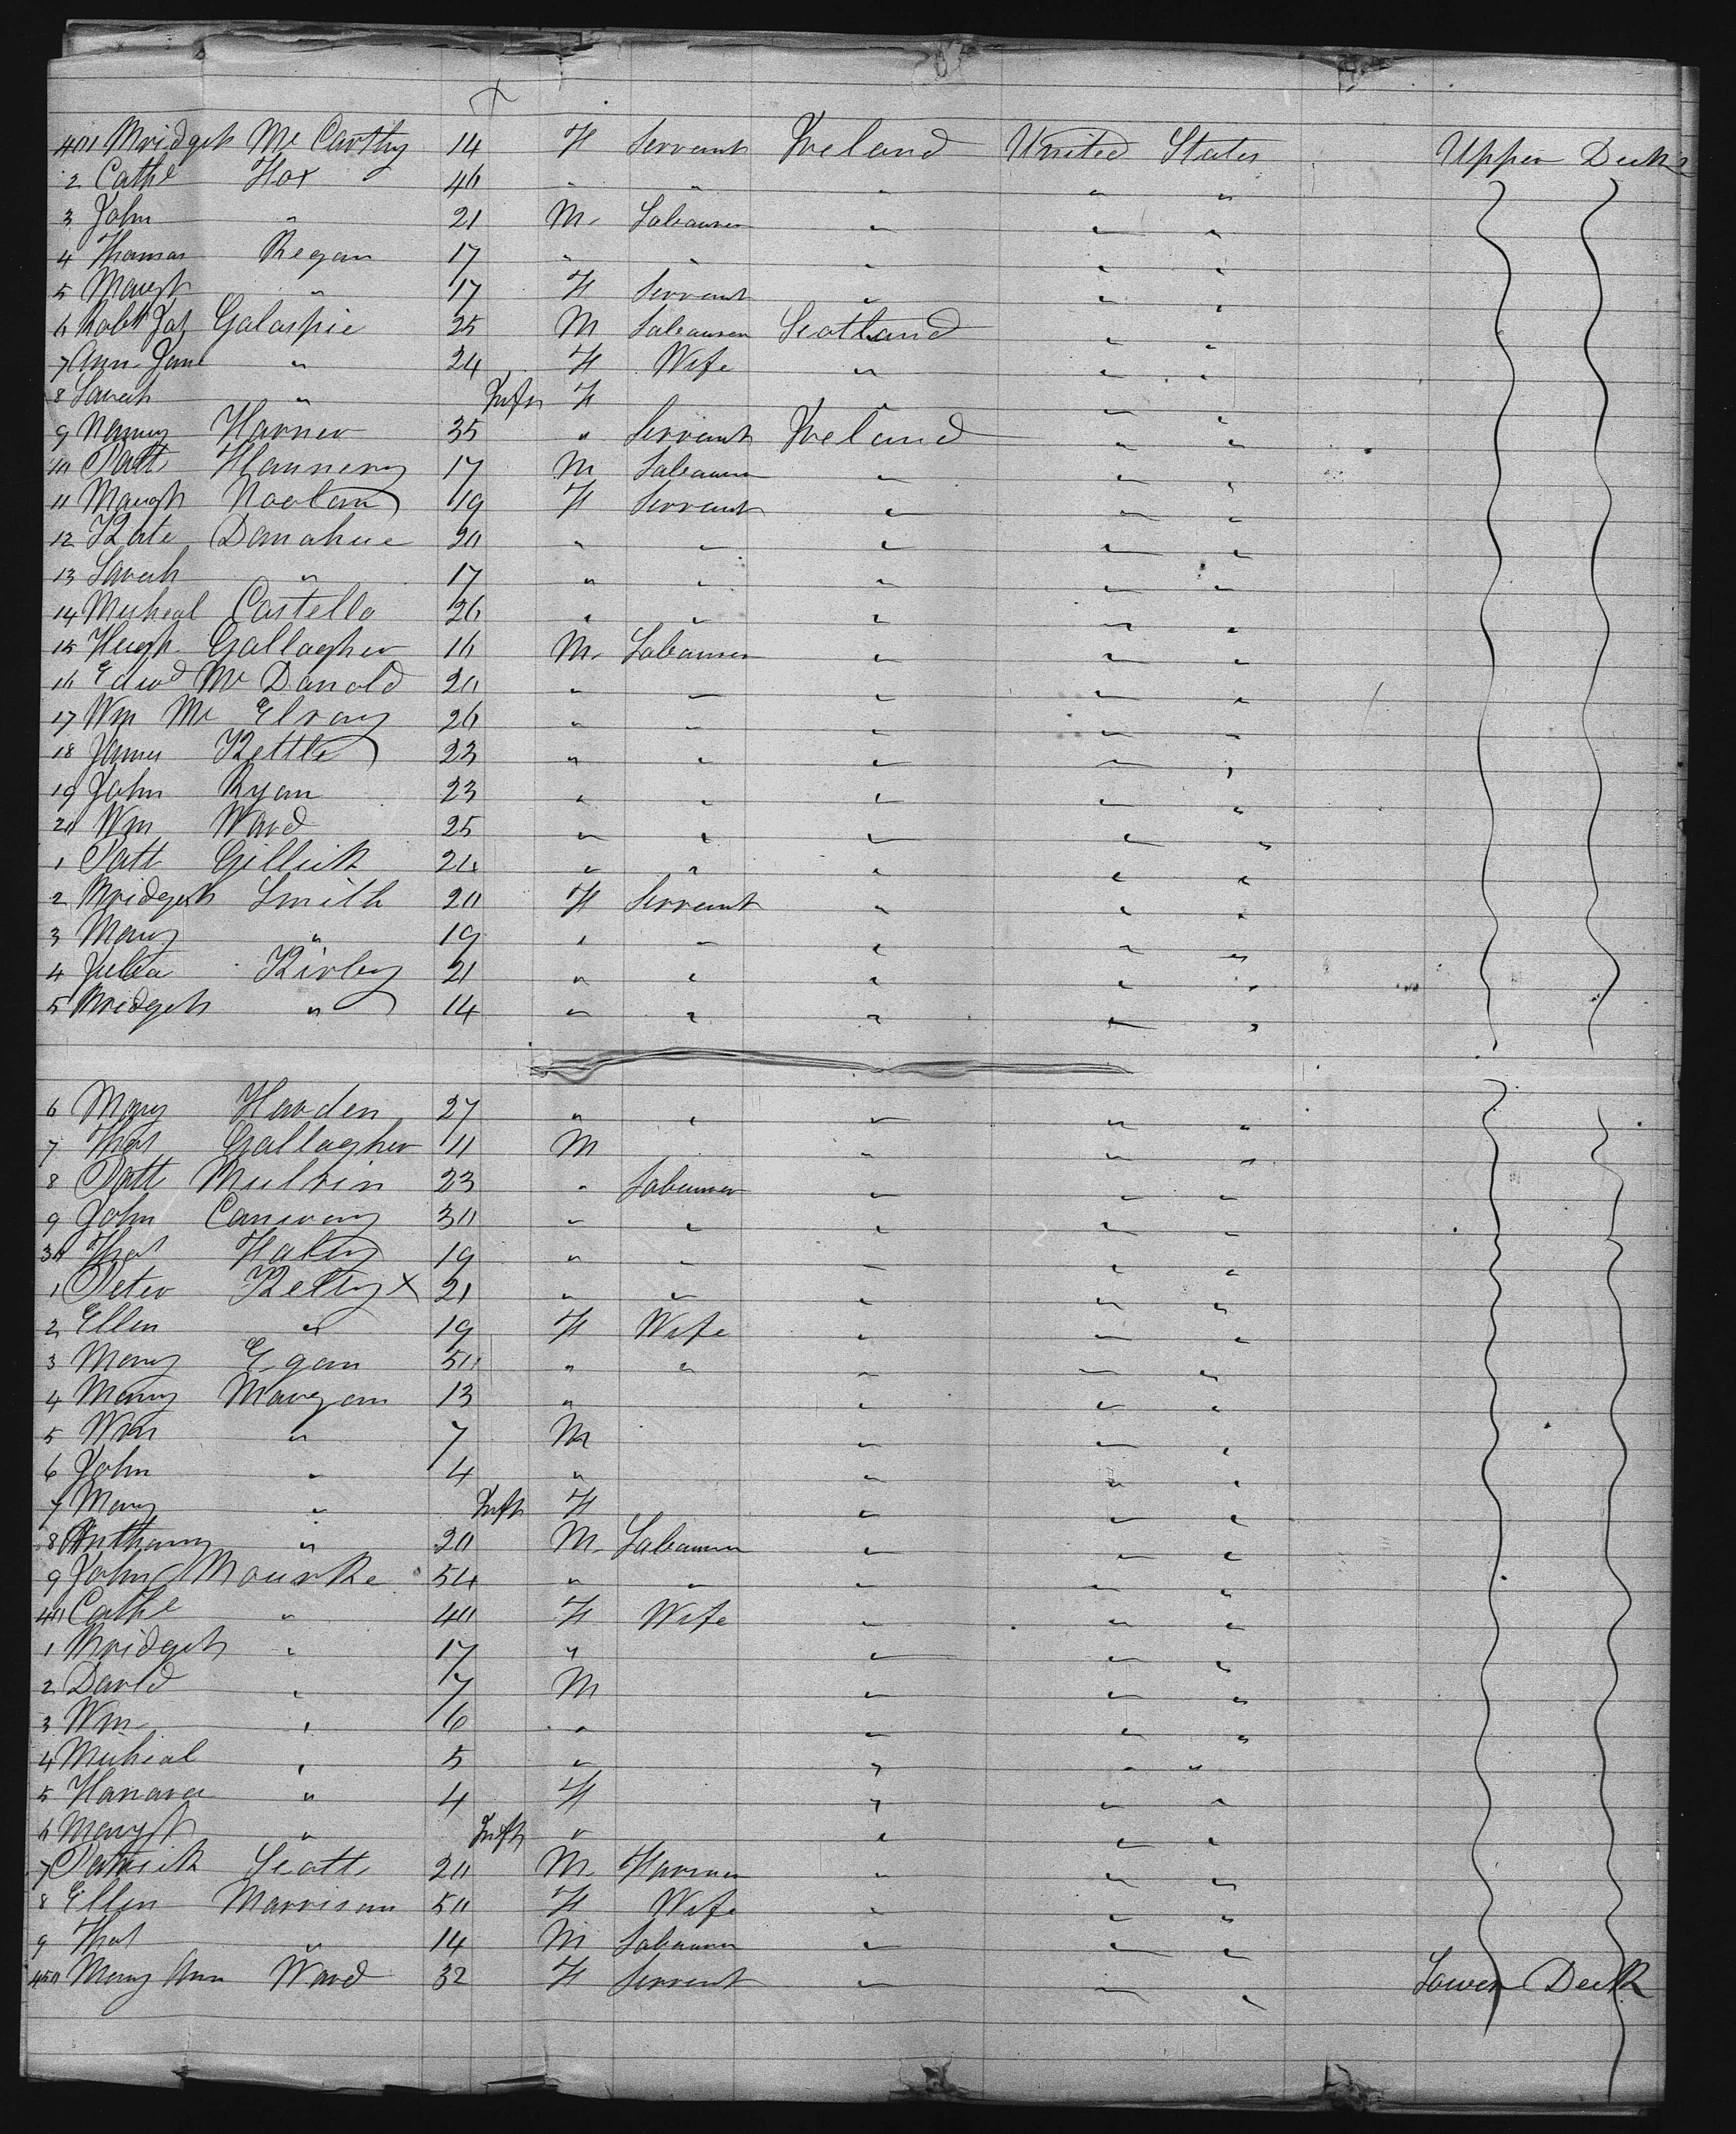 401 Bridget Mc Carthy 14 F Servant Ireland United States Upper Deck
2 Cathe Fox 40 " " " " "
3 John " 21 M. Labourer " " "
4 Thomas Regan 17 " " " " "
5 Margt " 17 F Servant " " "
6 Robt Jas Galaspie 25 M Labourer Scotland " "
7 Ann Jane " 24 F Wife " " "
8 Sarah " Inft F " " "
9 Nancy Farner 35 " Servant Ireland " "
10 Patt Flannery 17 M Labourer " " "
11 Margt Noolan 19 F Servant " " "
12 Kate Donahue 20 " " " " "
13 Sarah " 17 " " " " "
14 Micheal Costello 26 " " " " "
15 Hugh Gallagher 16 M. Labourer " " "
16 Edwd Mc Donold 20 " " " " "
17 Wm Mc Elroy 26 " " " " "
18 James Kettle 23 " " " " "
19 John Ryan 23 " " " " "
20 Wm Ward 25 " " " " "
1 Patt Gillick 24 " " " " "
2 Bridget Smith 20 F Servant " " "
3 Mary " 19 " " " " "
4 Julia Kirley 21 " " " " "
5 Bridget " 14 " " " " "
6 Mary Harden 27 " " " " "
7 Thos Gallagher 11 M " " "
8 Patt Mulvin 23 " Labourer " " "
9 John Conway 30 " " " " "
30 Thos 19 " " " " "
1 Peter Kelly x 21 " " " " "
2 Ellen " 19 F Wife " " "
3 Mary Egan 50 " " " " "
4 Mary Morgan 13 " " " "
5 Wm " 7 M " " "
6 John " 4 " " " "
7 Mary " Inft F " " "
8 Anthony " 20 M. Labourer " " "
9 John Rourke 54 " " " " "
40 Cathe " 40 F Wife " " "
1 Bridget " 17 " " " "
2 David " 7 M " " "
3 Wm " 6 " " " "
4 Micheal " 5 " " " "
5 Hanora " 4 F " " "
6 Margt " Inft " " " "
7 Patrick Scott 20 M Farmer " " "
8 Ellen Morrison 50 F Wife " " "
9 Thos " 14 M Labourer " " "
450 Mary Ann Ward 32 F Servant " " " Lower Deck